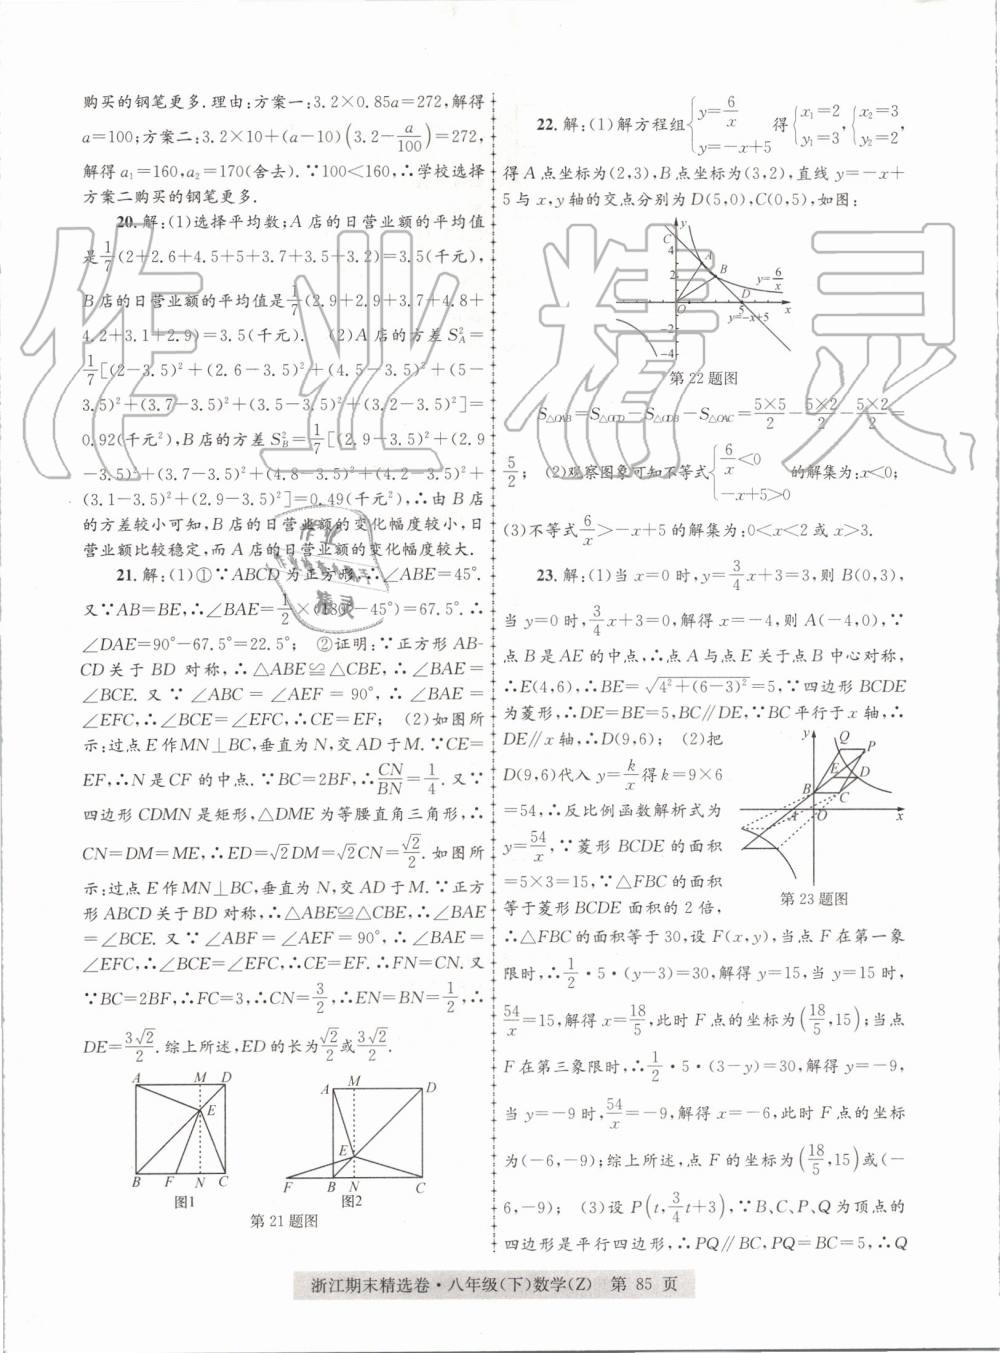 购买的钢笔更多.理由:方案一:3.2×0.85a=272,解得
a=100;方案二:3.2×10+(a-10)(3.2-a/100)=272,
解得a₁=160,a₂=170(舍去).∵100<160,∴学校选择
方案二购买的钢笔更多.
20.解:(1)选择平均数;A店的日营业额的平均值
是1/7(2+2.6+4.5+5+3.7+3.5+3.2)=3.5(千元),
B店的日营业额的平均值是1/7(2.9+2.9+3.7+4.8+
4.2+3.1+2.9)=3.5(千元). (2)A店的方差S²_A=
1/7[(2-3.5)²+(2.6-3.5)²+(4.5-3.5)²+(5-
3.5)²+(3.7-3.5)²+(3.5-3.5)²+(3.2-3.5)²]=
0.92(千元²),B店的方差S²_B=1/7[(2.9-3.5)²+(2.9
-3.5)²+(3.7-3.5)²+(4.8-3.5)²+(4.2-3.5)²+
(3.1-3.5)²+(2.9-3.5)²]=0.49(千元²),∴由B店
的方差较小可知,B店的日营业额的变化幅度较小,日
营业额比较稳定,而A店的日营业额的变化幅度较大.
21.解:(1)①∵ABCD为正方形,∴∠ABE=45°.
又∵AB=BE,∴∠BAE=1/2×(180°-45°)=67.5°.∴
∠DAE=90°-67.5°=22.5°; ②证明:∵正方形AB-
CD关于BD对称,∴△ABE≌△CBE,∴∠BAE=
∠BCE.又∵∠ABC=∠AEF=90°,∴∠BAE=
∠EFC,∴∠BCE=∠EFC,∴CE=EF; (2)如图所
示:过点E作MN⊥BC,垂直为N,交AD于M.∵CE=
EF,∴N是CF的中点.∵BC=2BF,∴CN/BN=1/4.又∵
四边形CDMN是矩形,△DME为等腰直角三角形,∴
CN=DM=ME,∴ED=√2DM=√2CN=√2/2.如图所
示:过点E作MN⊥BC,垂直为N,交AD于M.∵正方
形ABCD关于BD对称,∴△ABE≌△CBE,∴∠BAE
=∠BCE.又∵∠ABF=∠AEF=90°,∴∠BAE=
∠EFC,∴∠BCE=∠EFC,∴CE=EF.∴FN=CN.又
∵BC=2BF,∴FC=3,∴CN=3/2,∴EN=BN=1/2,∴
DE=3√2/2.综上所述,ED的长为√2/2或3√2/2.
A M D
E
B F N C
图1
A M D
E
F B N C
图2
第21题图
22.解:(1)解方程组{y=6/x y=-x+5 得{x₁=2 y₁=3,{x₂=3 y₂=2,
得A点坐标为(2,3),B点坐标为(3,2),直线y=-x+
5与x,y轴的交点分别为D(5,0),C(0,5),如图:
y
C
4
A
2
B
y=6/x
O
5
D
x
y=-x+5
-2
-4
第22题图
S△OAB=S△OCD-S△ODB-S△OAC=5×5/2-5×2/2-5×2/2=
5/2; (2)观察图象可知不等式{6/x<0 -x+5>0 的解集为:x<0;
(3)不等式6/x>-x+5的解集为:0<x<2或x>3.
23.解:(1)当x=0时,y=3/4x+3=3,则B(0,3),
当y=0时,3/4x+3=0,解得x=-4,则A(-4,0),∵
点B是AE的中点,∴点A与点E关于点B中心对称,
∴E(4,6),∴BE=√4²+(6-3)²=5,∵四边形BCDE
为菱形,∴DE=BE=5,BC∥DE,∵BC平行于x轴,∴
DE∥x轴,∴D(9,6); (2)把
D(9,6)代入y=k/x得k=9×6
=54,∴反比例函数解析式为
y=54/x,∵菱形BCDE的面积
=5×3=15,∵△FBC的面积
等于菱形BCDE面积的2倍,
y
Q
P
E
D
B
C
A
O
x
第23题图
∴△FBC的面积等于30,设F(x,y),当点F在第一象
限时,∴1/2·5·(y-3)=30,解得y=15,当y=15时,
54/x=15,解得x=18/5,此时F点的坐标为(18/5,15);当点
F在第三象限时,∴1/2·5·(3-y)=30,解得y=-9,
当y=-9时,54/x=-9,解得x=-6,此时F点的坐标
为(-6,-9);综上所述,点F的坐标为(18/5,15)或(-
6,-9); (3)设P(t,3/4t+3),∵B、C、P、Q为顶点的
四边形是平行四边形,∴PQ∥BC,PQ=BC=5,∴Q
浙江期末精选卷·八年级(下)数学(Z) 第 85 页
作业精灵
作业
精灵